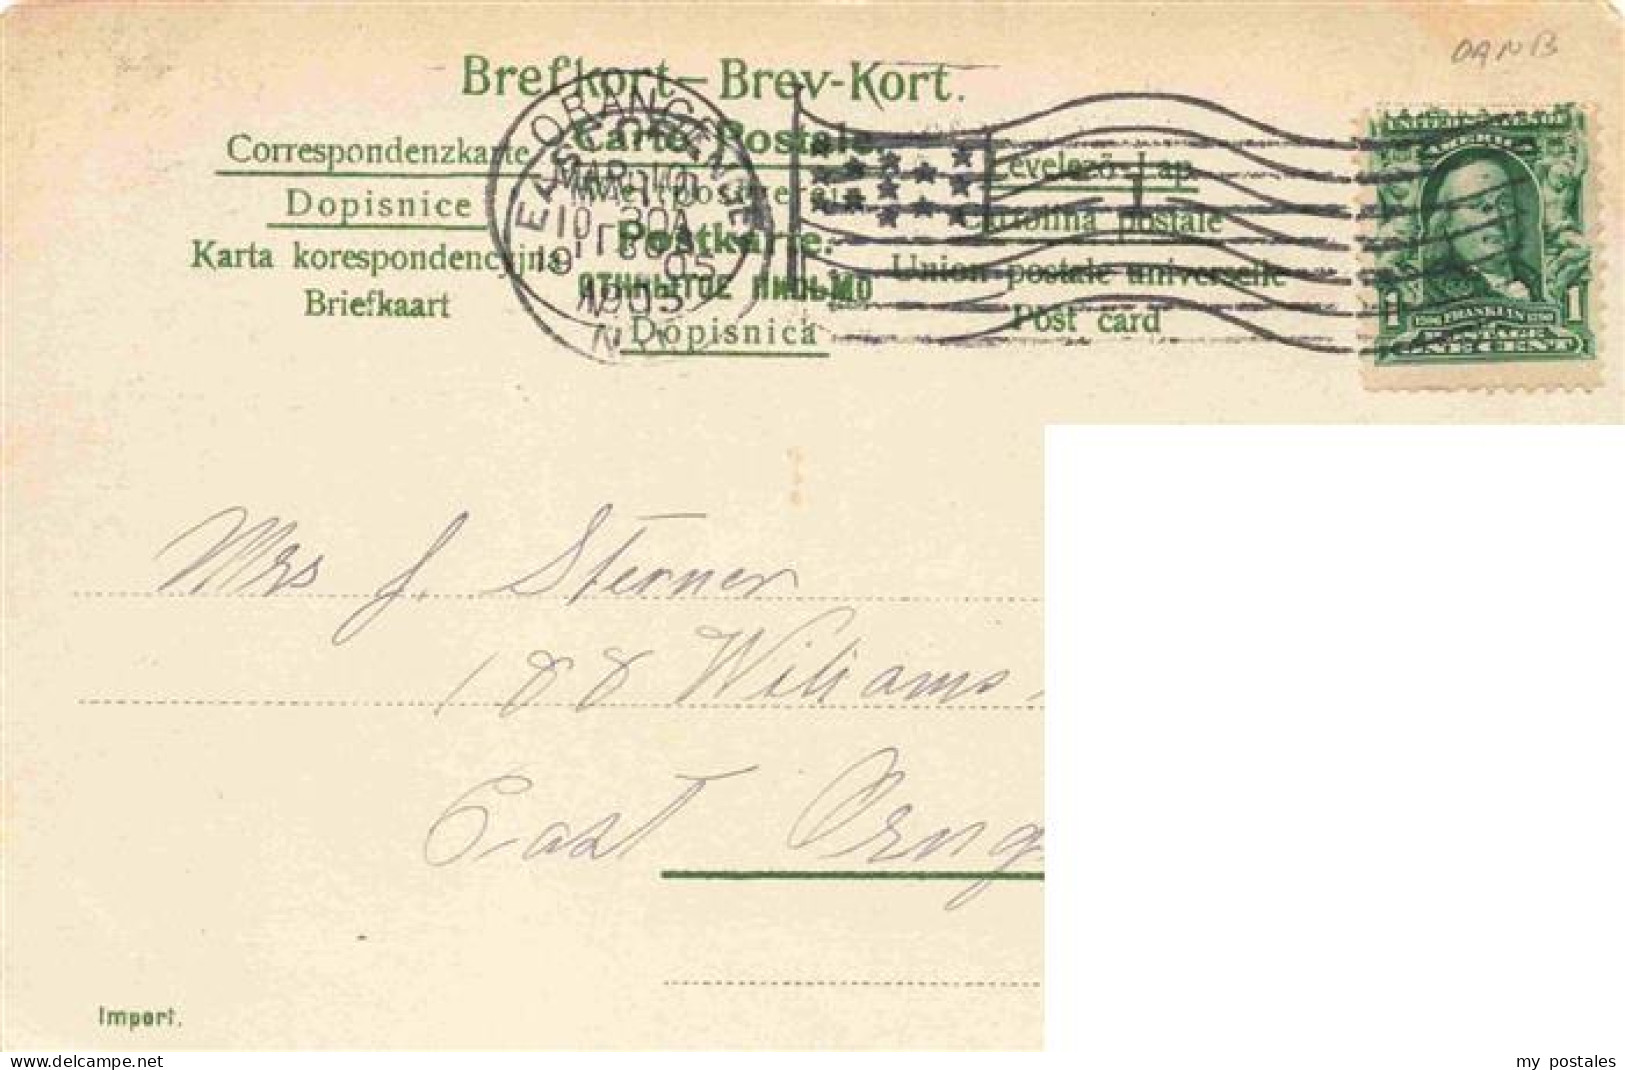 DANB
Brefkort – Brev-Kort.
Correspondenzkarte
Carte Postale.
Levelező-Lap
Dopisnice
Cartolina postale
Karta korespondencyjna
Postkarte.
Union postale universelle
Briefkaart
письмо
Post card
Dopisnica
EAST ORANGE
MAR 10
10 30A
1905
N.J.
1
UNITED STATES OF
AMERICA
1706 FRANKLIN 1790
POSTAGE
1 1
ONE CENT
Mrs J. Sterner
188 Williams
East Orng
Import.
my postales